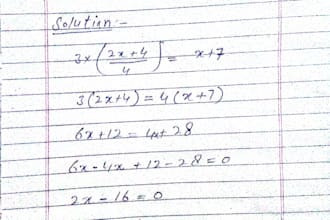 Solution:-
3×(2x+4/4) = x+7
3(2x+4) = 4(x+7)
6x+12 = 4x+28
6x-4x+12-28=0
2x-16=0